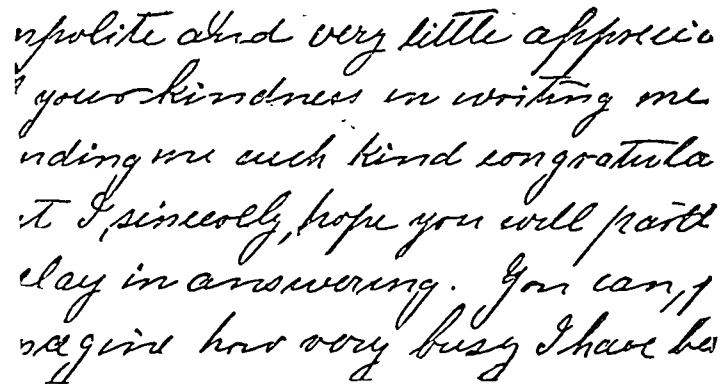 npolite and very little apprecia
your kindness in writing me
nding me such kind congratula
t I, sincerelly, hope you will
elay in answering. You can, p
magine how very busy I have be